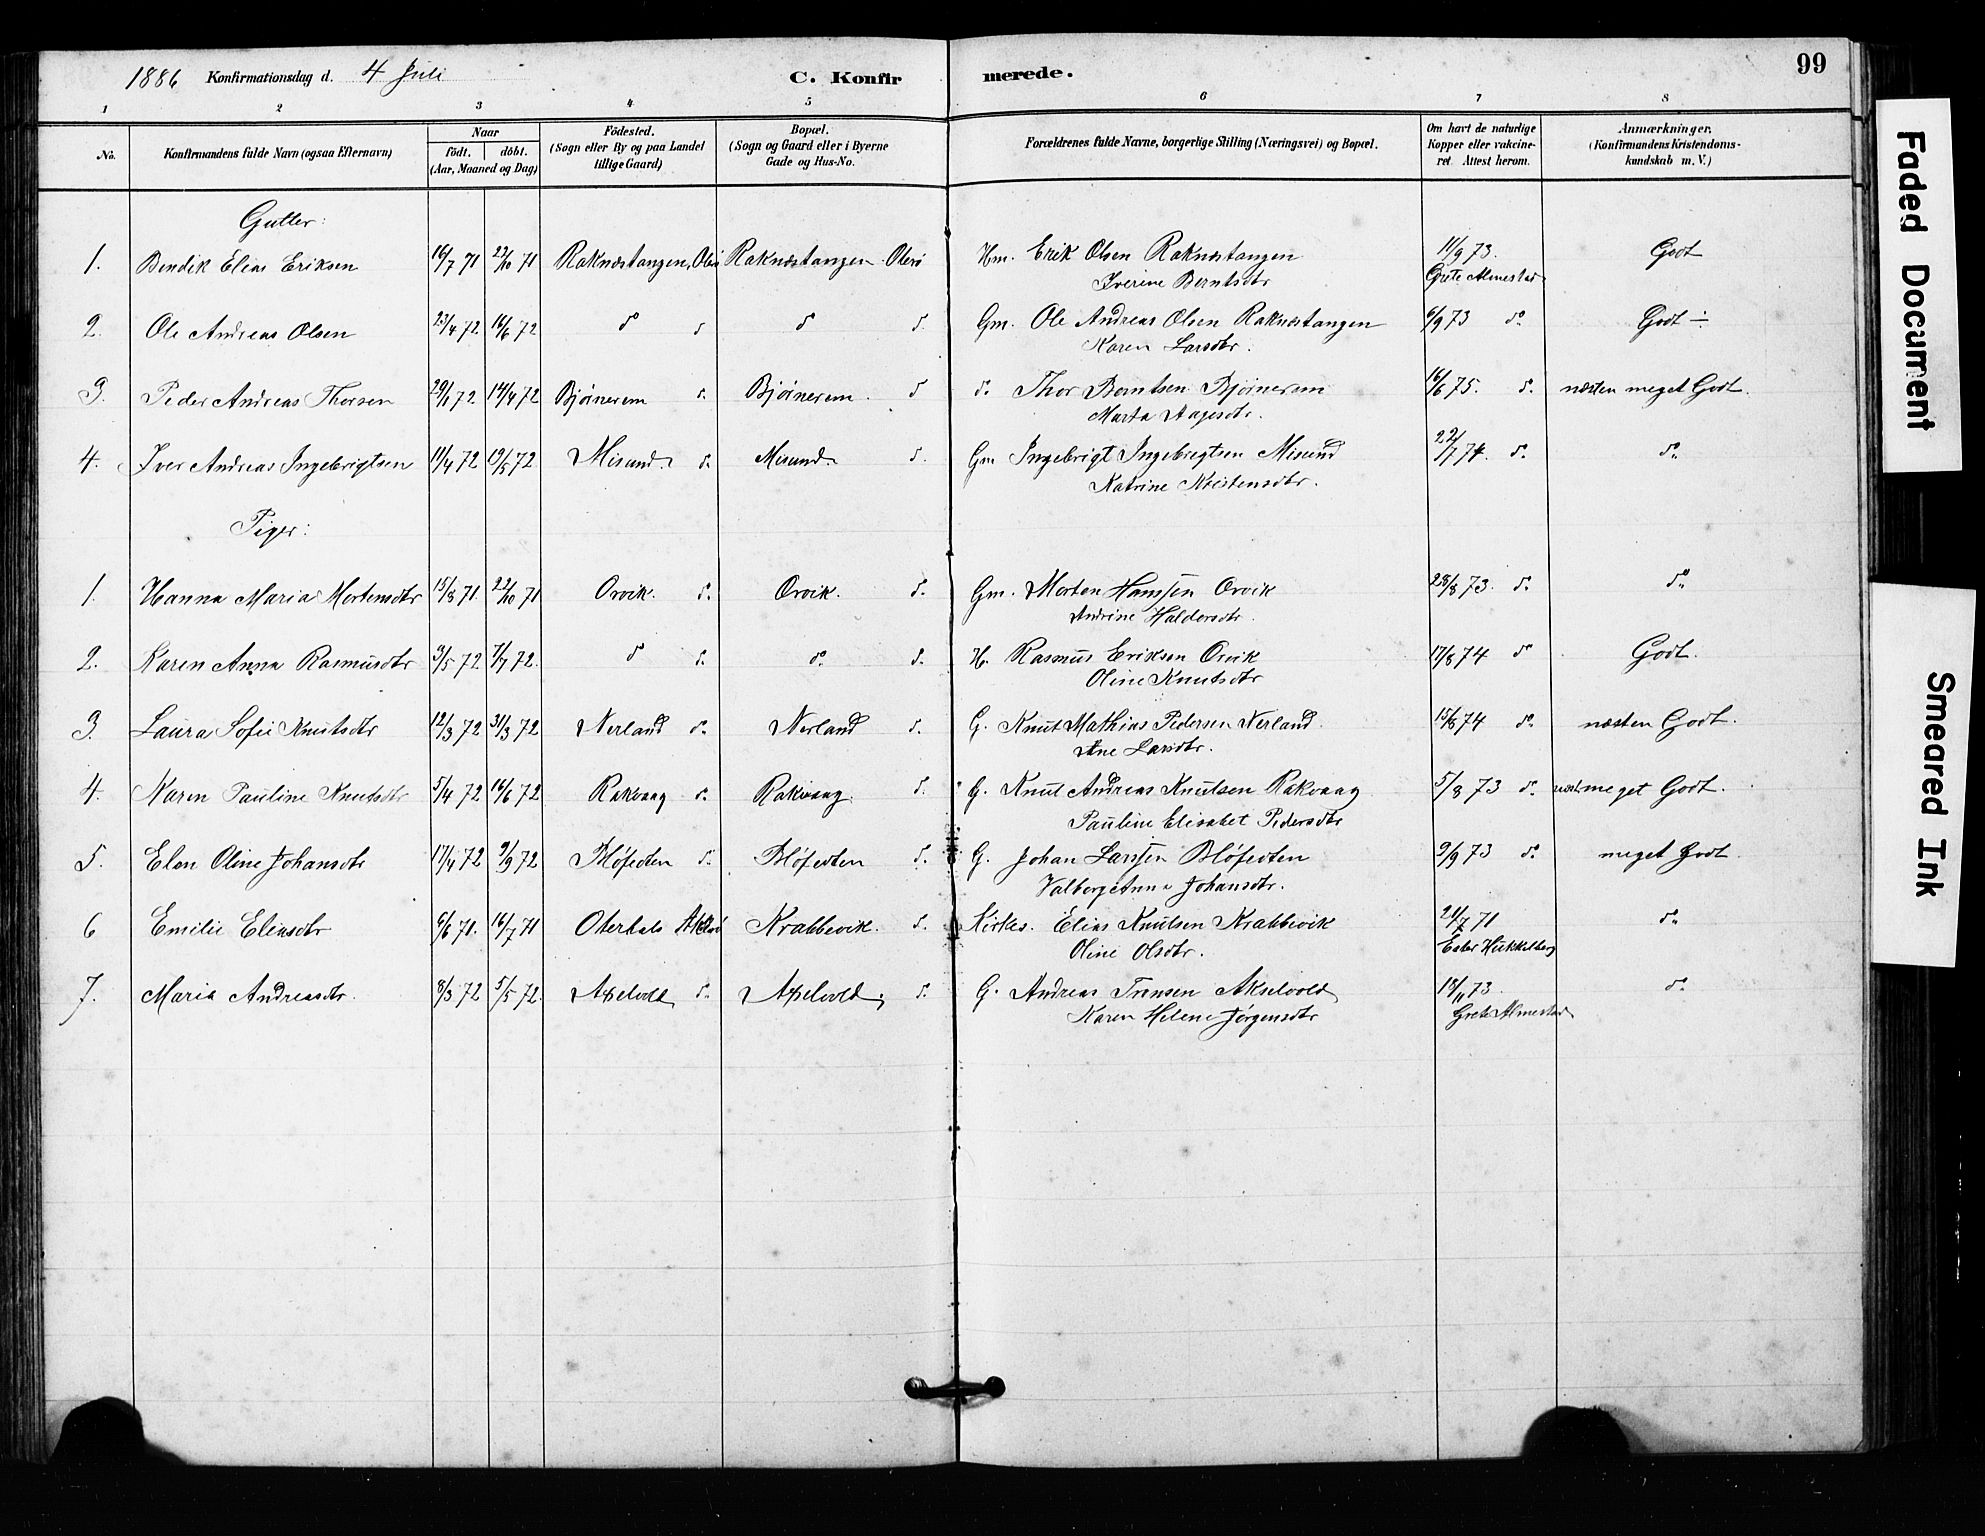 1886 Konfirmationsdag d. 4 Juli C. Konfir merede. 99
1 2 3 4 5 6 7 8
No. Konfirmandens fulde Navn (ogsaa Efternavn) Naar födt. döbt. (Aar, Maaned og Dag) Födested. (Sogn eller By og paa Landet tillige Gaard) Bopæl. (Sogn og Gaard eller i Byerne Gade og Hus-No. Forældrenes fulde Navne, borgerlige Stilling (Næringsvei) og Bopæl. Om havt de naturlige Kopper eller vakcineret. Attest herom. Anmærkninger. (Konfirmandens Kristendomskundskab m. V.)
Gutter:
1. Bendik Elias Eriksen 16/7 71 22/10 71 Raknæstangen, Raknæstangen Hm. Erik Olsen Raknæstangen 11/9 73. Godt
Iverine Berntsdtr Grete Almestad
2. Ole Andreas Olsen 23/4 72 16/6 72 do d do d. Gm. Ole Andreas Olsen Raknæstangen 9/9 73 do Godt ÷
Karen Larsdtr.
3. Peder Andreas Thorsen 29/1 72 14/4 72 Bjørnerem d. Bjørnerem. d d. Thor Berntsen Bjørnerem 16/6 75. d. næsten meget Godt.
Marta Aagesdtr.
4. Iver Andreas Ingebrigtsen 11/4 72 19/5 72 Misund. d. Misund. d. Gm Ingebrigt Ingebrigtsen Misund 22/7 74. do do
Katrine Kristensdtr.
Piger:
1. Hanna Maria Mortensdtr 15/8 71. 22/10 71 Orvik. d. Orvik. d. Gm. Morten Hanssen Orvik 28/8 73. d. do
Andrine Haldorsdtr.
2. Karen Anna Rasmusdtr 3/5 72 7/7 72. do d. do d. H. Rasmus Eriksen Orvik 17/8 74 do Godt.
Oline Knutsdtr
3. Laura Sofie Knutsdtr 12/3 72 31/3 72 Nerland d. Nerland d. G. Knut Mathias Pedersen Nerland. 15/8 74 do næsten Godt.
Ane Larsdtr.
4. Karen Pauline Knutsdtr 5/4 72 16/6 72 Rakvaag d. Rakvaag. d. G. Knut Andreas Knutsen Rakvaag 5/8 73 d. næst meget Godt.
Pauline Elisabet Pedersdtr
5. Elen Oline Johansdtr 17/4 72 9/9 72 d. d. G. Johan Larssen 9/9 73 d. meget Godt.
Valborg Anna Johansdtr.
6 Emilie Eliasdtr 9/6 71. 16/7 71 Oterhals Krabbevik. d. Kirkes. Elias Knutsen Krabbevik 21/7 71 do
Oline Olsdtr. Ester Hukkelberg
7. Maria Andreasdtr. 8/3 72 5/5 72. Axelvold d. Axelvold, d. G. Andreas Akselvold 18/11 73. do
Karen Helene Jørgensdtr Grete Almestad
Faded Document
Smeared Ink